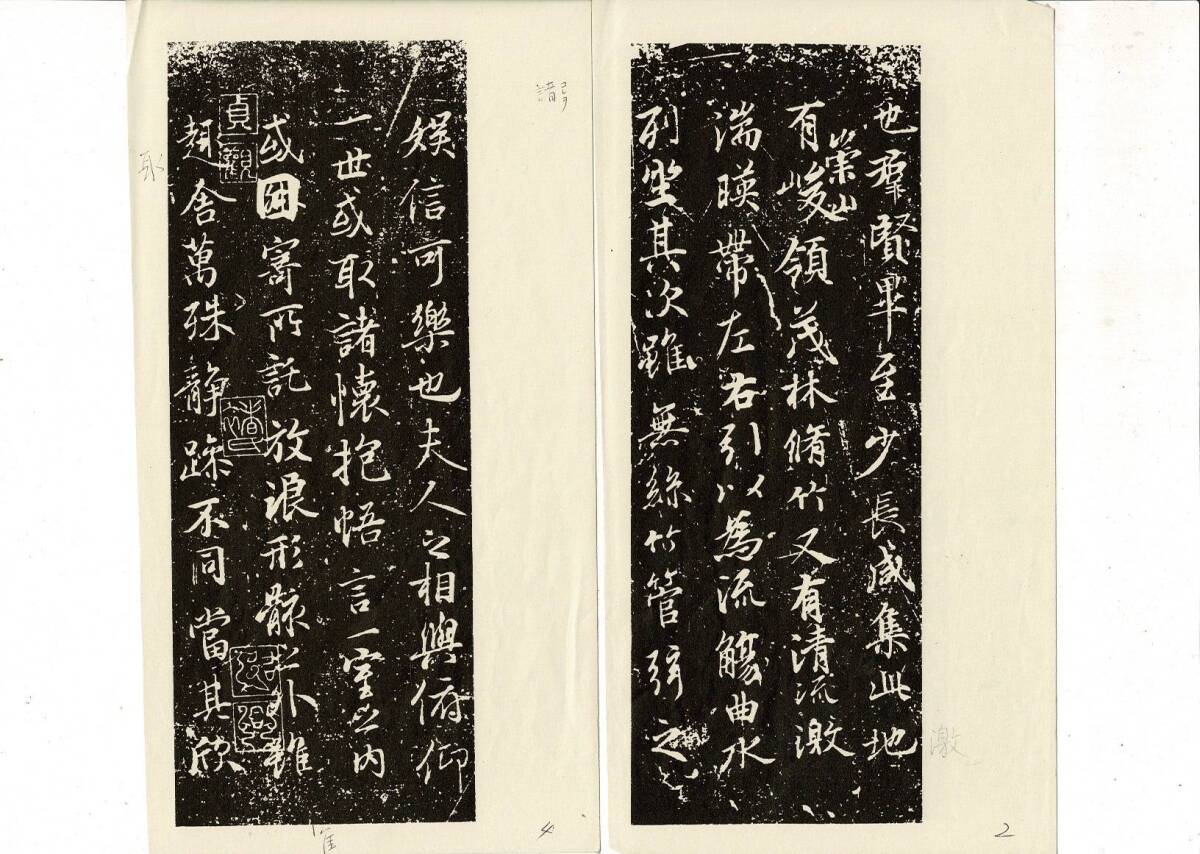 也羣賢畢至少長咸集此地
有崇山峻領茂林脩竹又有清流激
湍暎帶左右引以爲流觴曲水
列坐其次雖無絲竹管弦之
激
2
娛信可樂也夫人之相與俯仰
一世或取諸懷抱悟言一室之内
或因寄所託放浪形骸之外雖
趣舍萬殊静躁不同當其欣
貞觀
諸
取
4